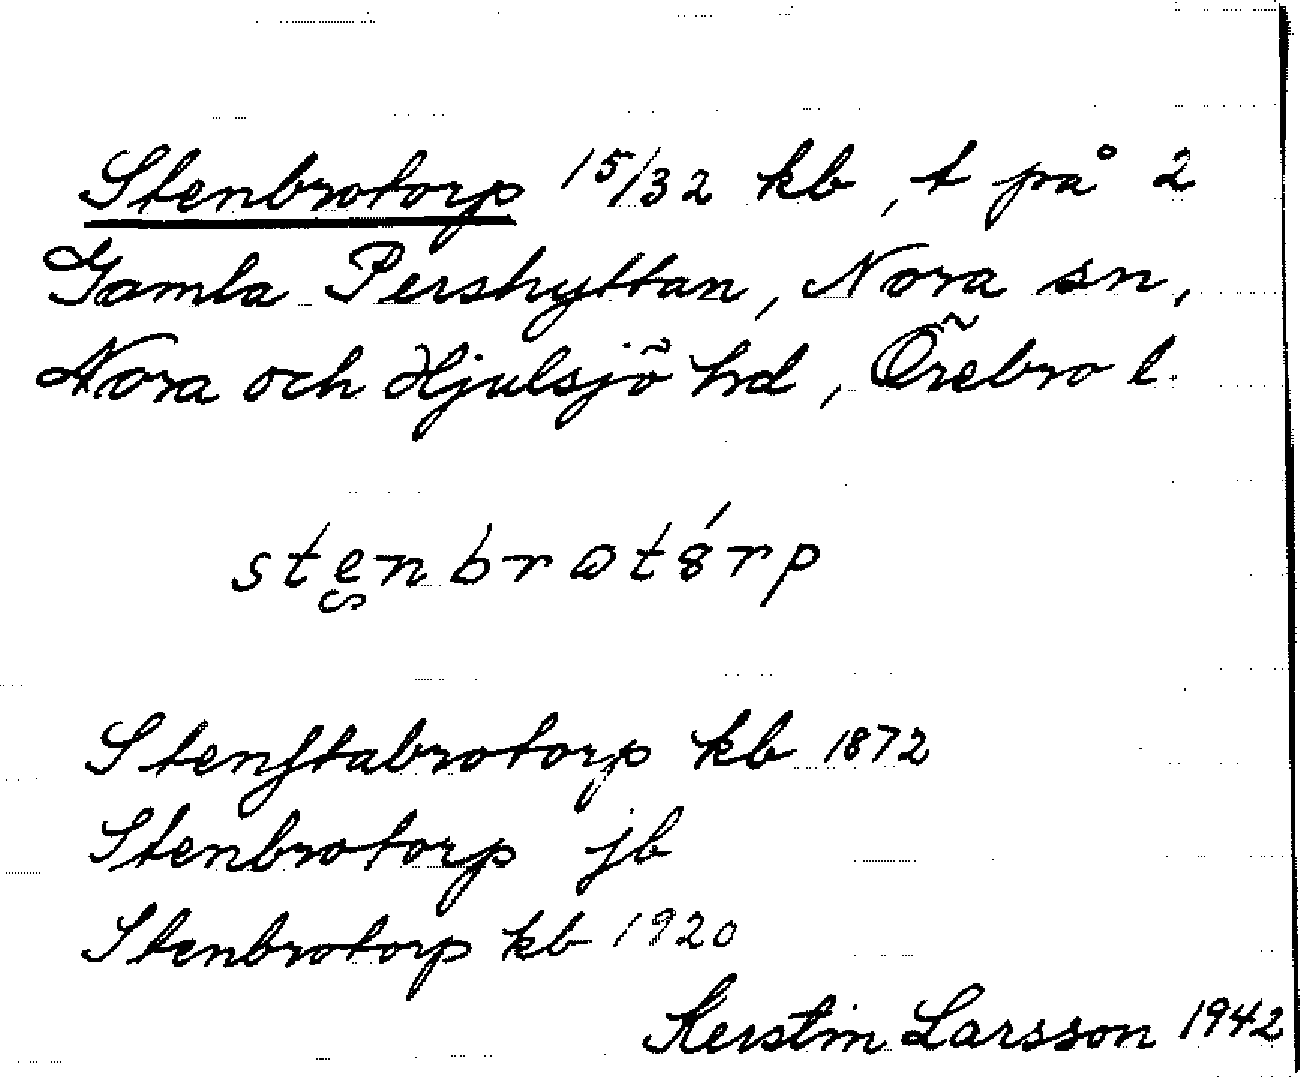 Stenbrotorp 15/32 kb, t på 2
Gamla Pershyttan, Nora sn,
Nora och Hjulsjö hrd, Örebro l.
Stenstabrotorp kb 1872
Stenbrotorp jb
Stenbrotorp kb 1920
Kerstin Larsson 1942